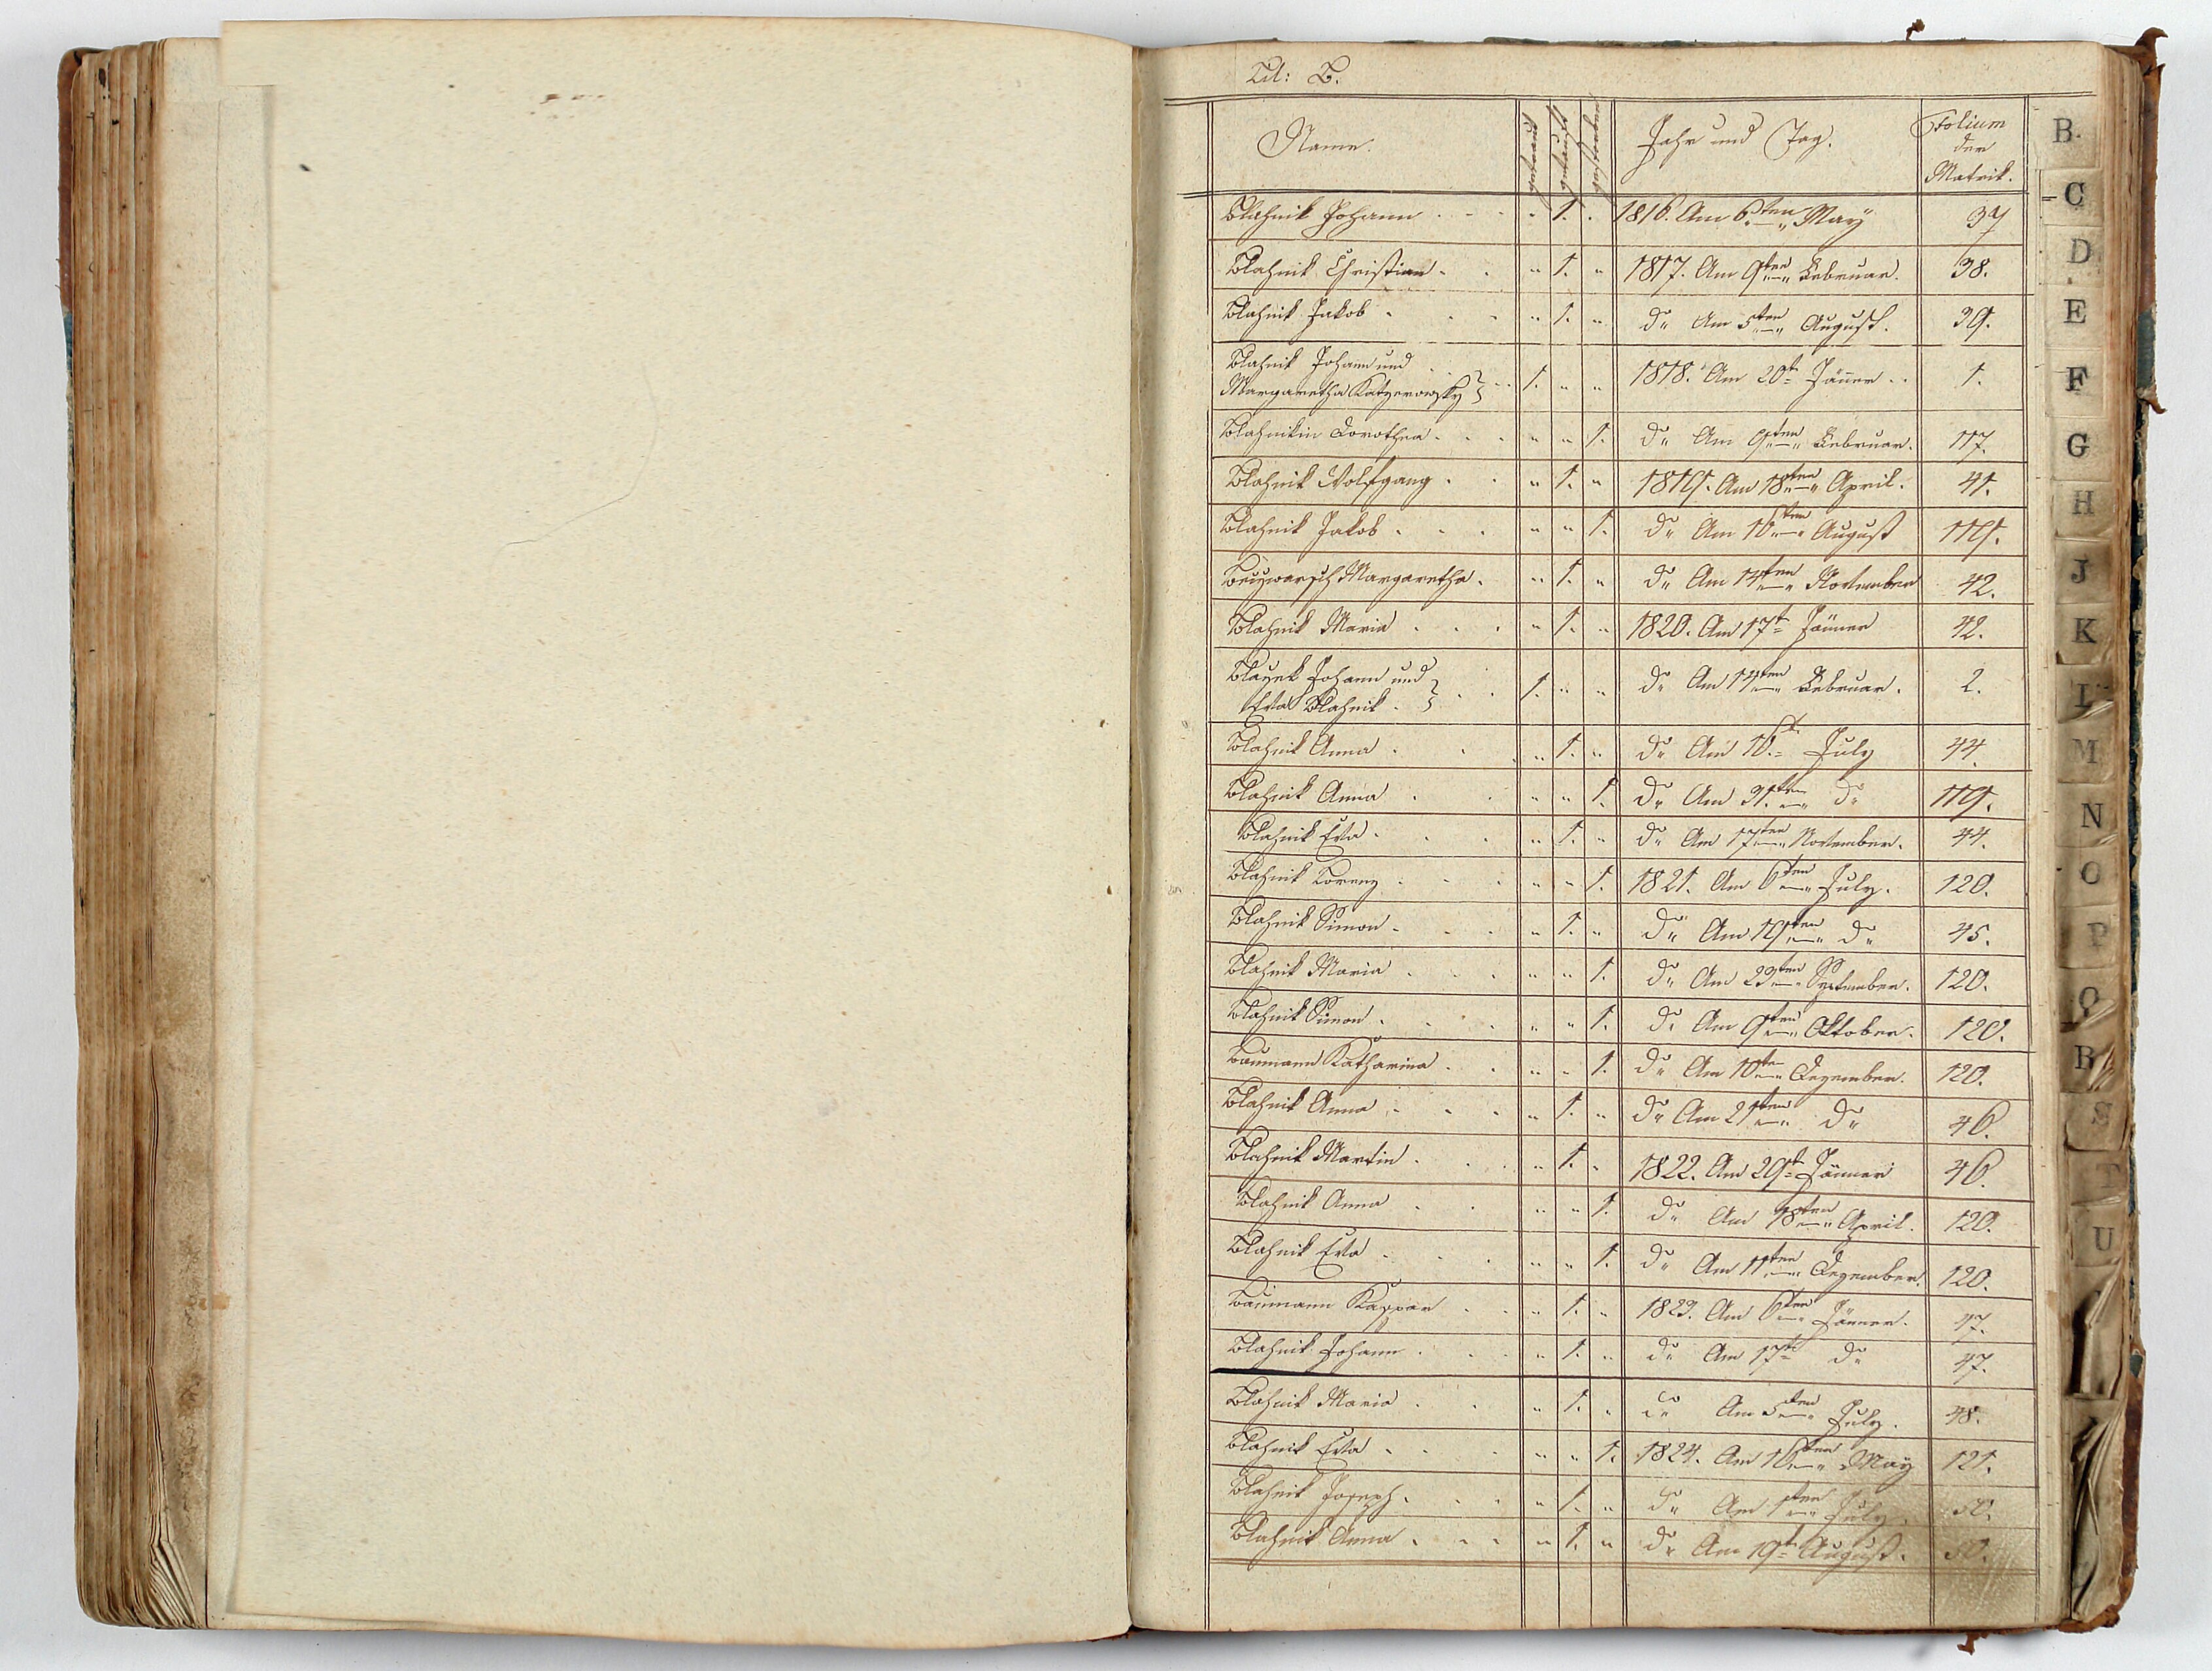 Lit: B.
Name. getraut getauft gestorben Jahr und Tag. Folium der Matrik.
Blahnik Johann . - - . 1. . 1816. Am 6ten May 37
Blahnik Christian . . " 1. " 1817. Am 9ten Februar. 38.
Blahnik Jakob . . . " 1. " do Am 5ten August. 39.
Blahnik Johann und
Margaretha Katzerowsky } . . 1. " " 1818. Am 20t Jänner . . 1.
Blahnikin Dorothea . . . " " 1. do Am 9ten Februar. 117.
Blahnik Wolfgang . . " 1. " 1819. Am 18ten April. 41.
Blahnik Jakob . . . " " 1. do Am 16ten August 119.
Margaretha . " 1. " do Am 14ten November 42.
Blahnik Maria . . . " 1. " 1820. Am 17t Jänner 42.
Blayek Johann und
Eva Blahnik . } . . 1. " " do Am 14ten Februar. 2.
Blahnik Anna . . . " 1. " do Am 16t July 44.
Blahnik Anna . . " " 1. do Am 31ten do 119.
Blahnik Eva . . . " 1. " do Am 17ten November. 44.
Blahnik Lorenz . . . " " 1. 1821. Am 6ten July. 120.
Blahnik Simon . . . " 1. " do Am 19ten do 45.
Blahnik Maria . . . " " 1. do Am 23ten September. 120.
Blahnik Simon . . . " " 1. do Am 9ten Oktober. 120.
Baumann Katharina . . " " 1. do Am 10ten Dezember. 120.
Blahnik Anna . . . " 1. " do Am 21ten do 46.
Blahnik Martin . . . " 1. " 1822. Am 29t Jänner 46.
Blahnik Anna . . " " 1. do Am 18ten April. 120.
Blahnik Eva . . . " " 1. do Am 11ten Dezember. 120.
Baumann Kaspar . . " 1. " 1823. Am 6ten Jänner. 47.
Blahnik Johann . . . " 1. " do Am 17t do 47.
Blahnik Maria . . " 1. . do Am 5ten July. 48.
Blahnik Eva . . . " " 1. 1824. Am 16ten May 121.
Blahnik Joseph . . . " 1. " do Am 1ten July. 50.
Blahnik Anna . . . " 1. " do Am 19t August. 50.
B.
C
D
E
F
G
H
J
K
L
M
N
O
P
Q
R
S
T
U